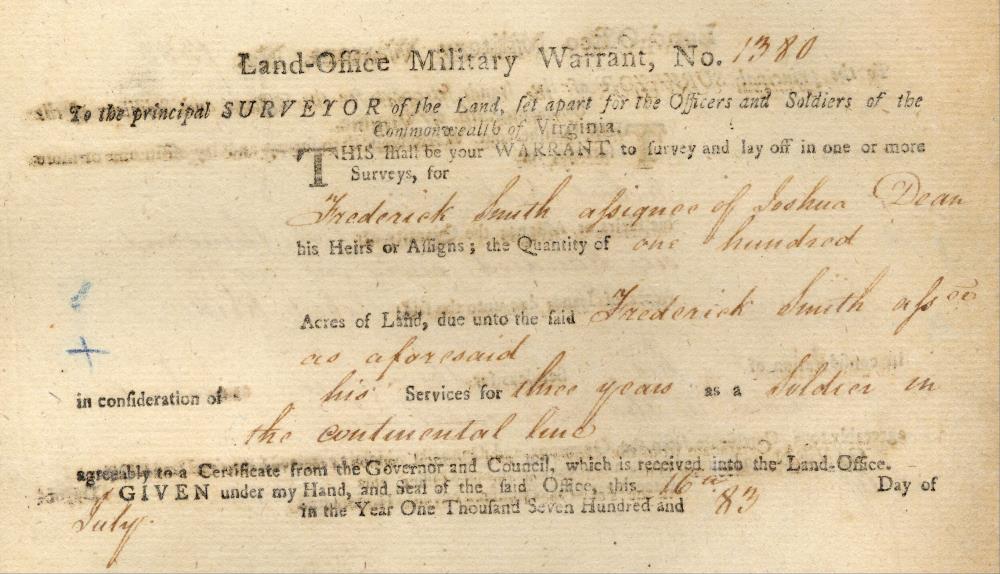 Land-Office Military Warrant, No. 1380
To the principal SURVEYOR of the Land, ſet apart for the Officers and Soldiers of the
Commonwealth of Virginia.
THIS ſhall be your WARRANT to ſurvey and lay off in one or more
Surveys, for
Frederick Smith aſsignee of Joshua Dean
his Heirs or Aſſigns; the Quantity of one hundred
Acres of Land, due unto the ſaid Frederick Smith aſsee
as aforesaid
in conſideration of his Services for three years as a Soldier in
the continental line
agreeably to a Certificate from the Governor and Council, which is received into the Land-Office.
GIVEN under my Hand, and Seal of the ſaid Office, this 16th Day of
July in the Year One Thouſand Seven Hundred and 83